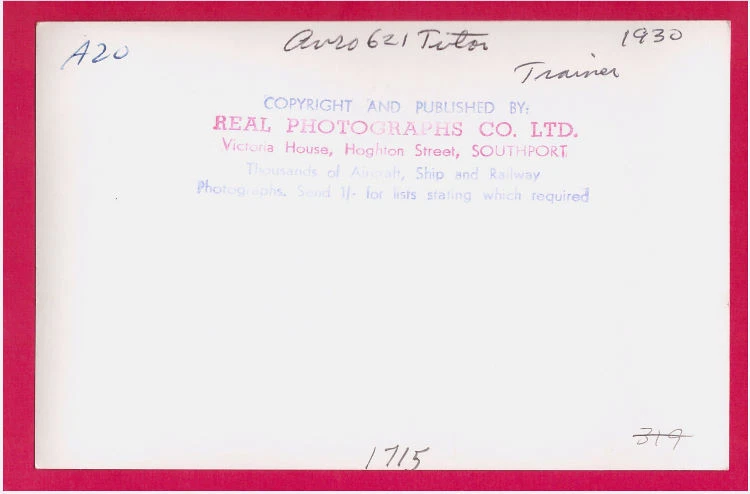 A20
Avro 621 Tutor
1930
Trainer
COPYRIGHT AND PUBLISHED BY:
REAL PHOTOGRAPHS CO. LTD.
Victoria House, Hoghton Street, SOUTHPORT
Thousands of Aircraft, Ship and Railway
Photographs. Send 1/- for lists stating which required
319
1715